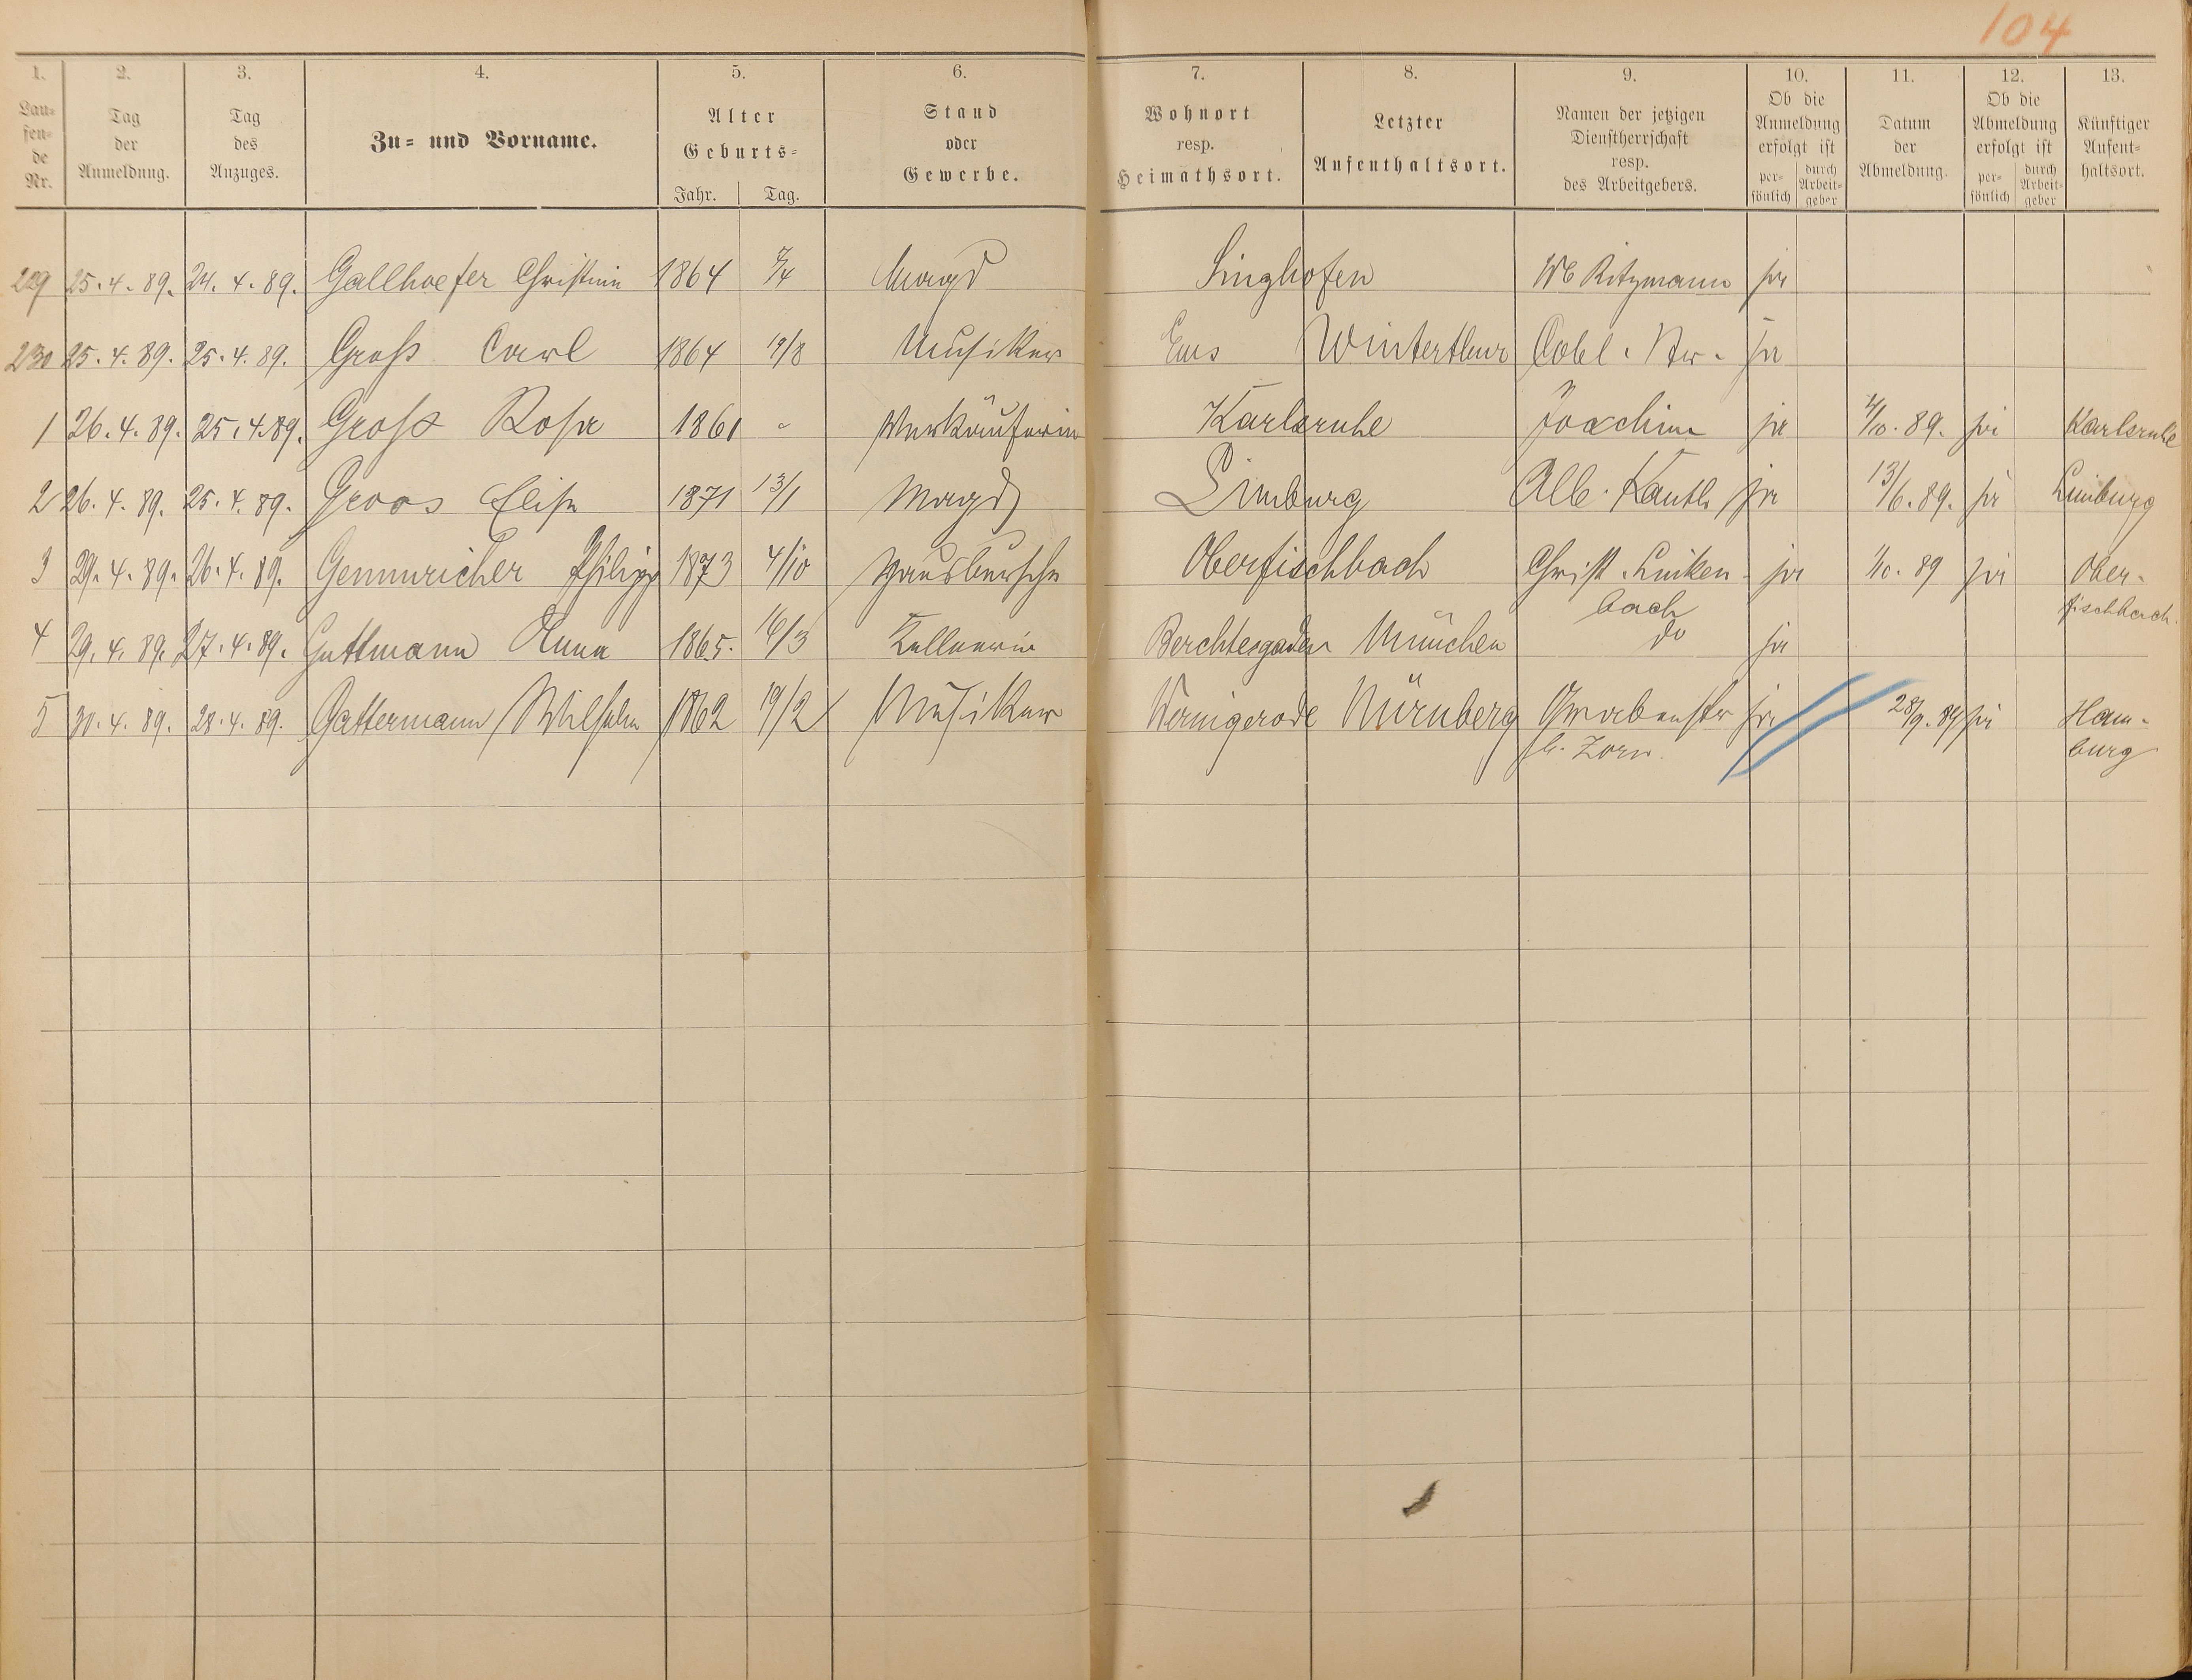 104
1. 2. 3. 4. 5. 6. 7. 8. 9. 10. 11. 12. 13.
Lau-
fen-
de
Nr.
Tag
der
Anmeldung.
Tag
des
Anzuges.
Zu- und Vorname.
Alter
Geburts-
Jahr. Tag.
Stand
oder
Gewerbe.
Wohnort
resp.
Heimathsort.
Letzter
Aufenthaltsort.
Namen der jetzigen
Dienstherrschaft
resp.
des Arbeitgebers.
Ob die
Anmeldung
erfolgt ist
per-
sönlich
durch
Arbeit-
geber
Datum
der
Abmeldung.
Ob die
Abmeldung
erfolgt ist
per-
sönlich
durch
Arbeit-
geber
Künftiger
Aufent-
haltsort.
229 25.4.89. 24.4.89. Gallhoefer Christine 1864 /4 Magd Singhofen Ritzmann ja
230 25.4.89. 25.4.89. Groß Carl 1864 19/8 Musiker Ems Winterthur Cobl. Str. ja
1 26.4.89. 25.4.89. Groß Rosa 1861 - Verkäuferin Karlsruhe Joachim ja 4/10.89. ja Karlsruhe
2 26.4.89. 25.4.89. Groos Elise 1871 13/1 Magd Limburg Alb. Kauth ja 13/6.89. ja Limburg
3 29.4.89. 26.4.89. Gemmricher Philipp 1873 4/10 Hausbursche Oberfischbach Christ. Linken- ja 1/10.89 ja Ober-
bach fischbach.
4 29.4.89. 27.4.89. Guttmann Anna 1865. 16/3 Kellnerin Berchtesgaden München do ja
5 30.4.89. 28.4.89. Gattermann Wilhelm 1862 19/2 Musiker Wernigerode Nürnberg Grabenstr ja 28/9.89 ja Ham-
b. Zorn. burg